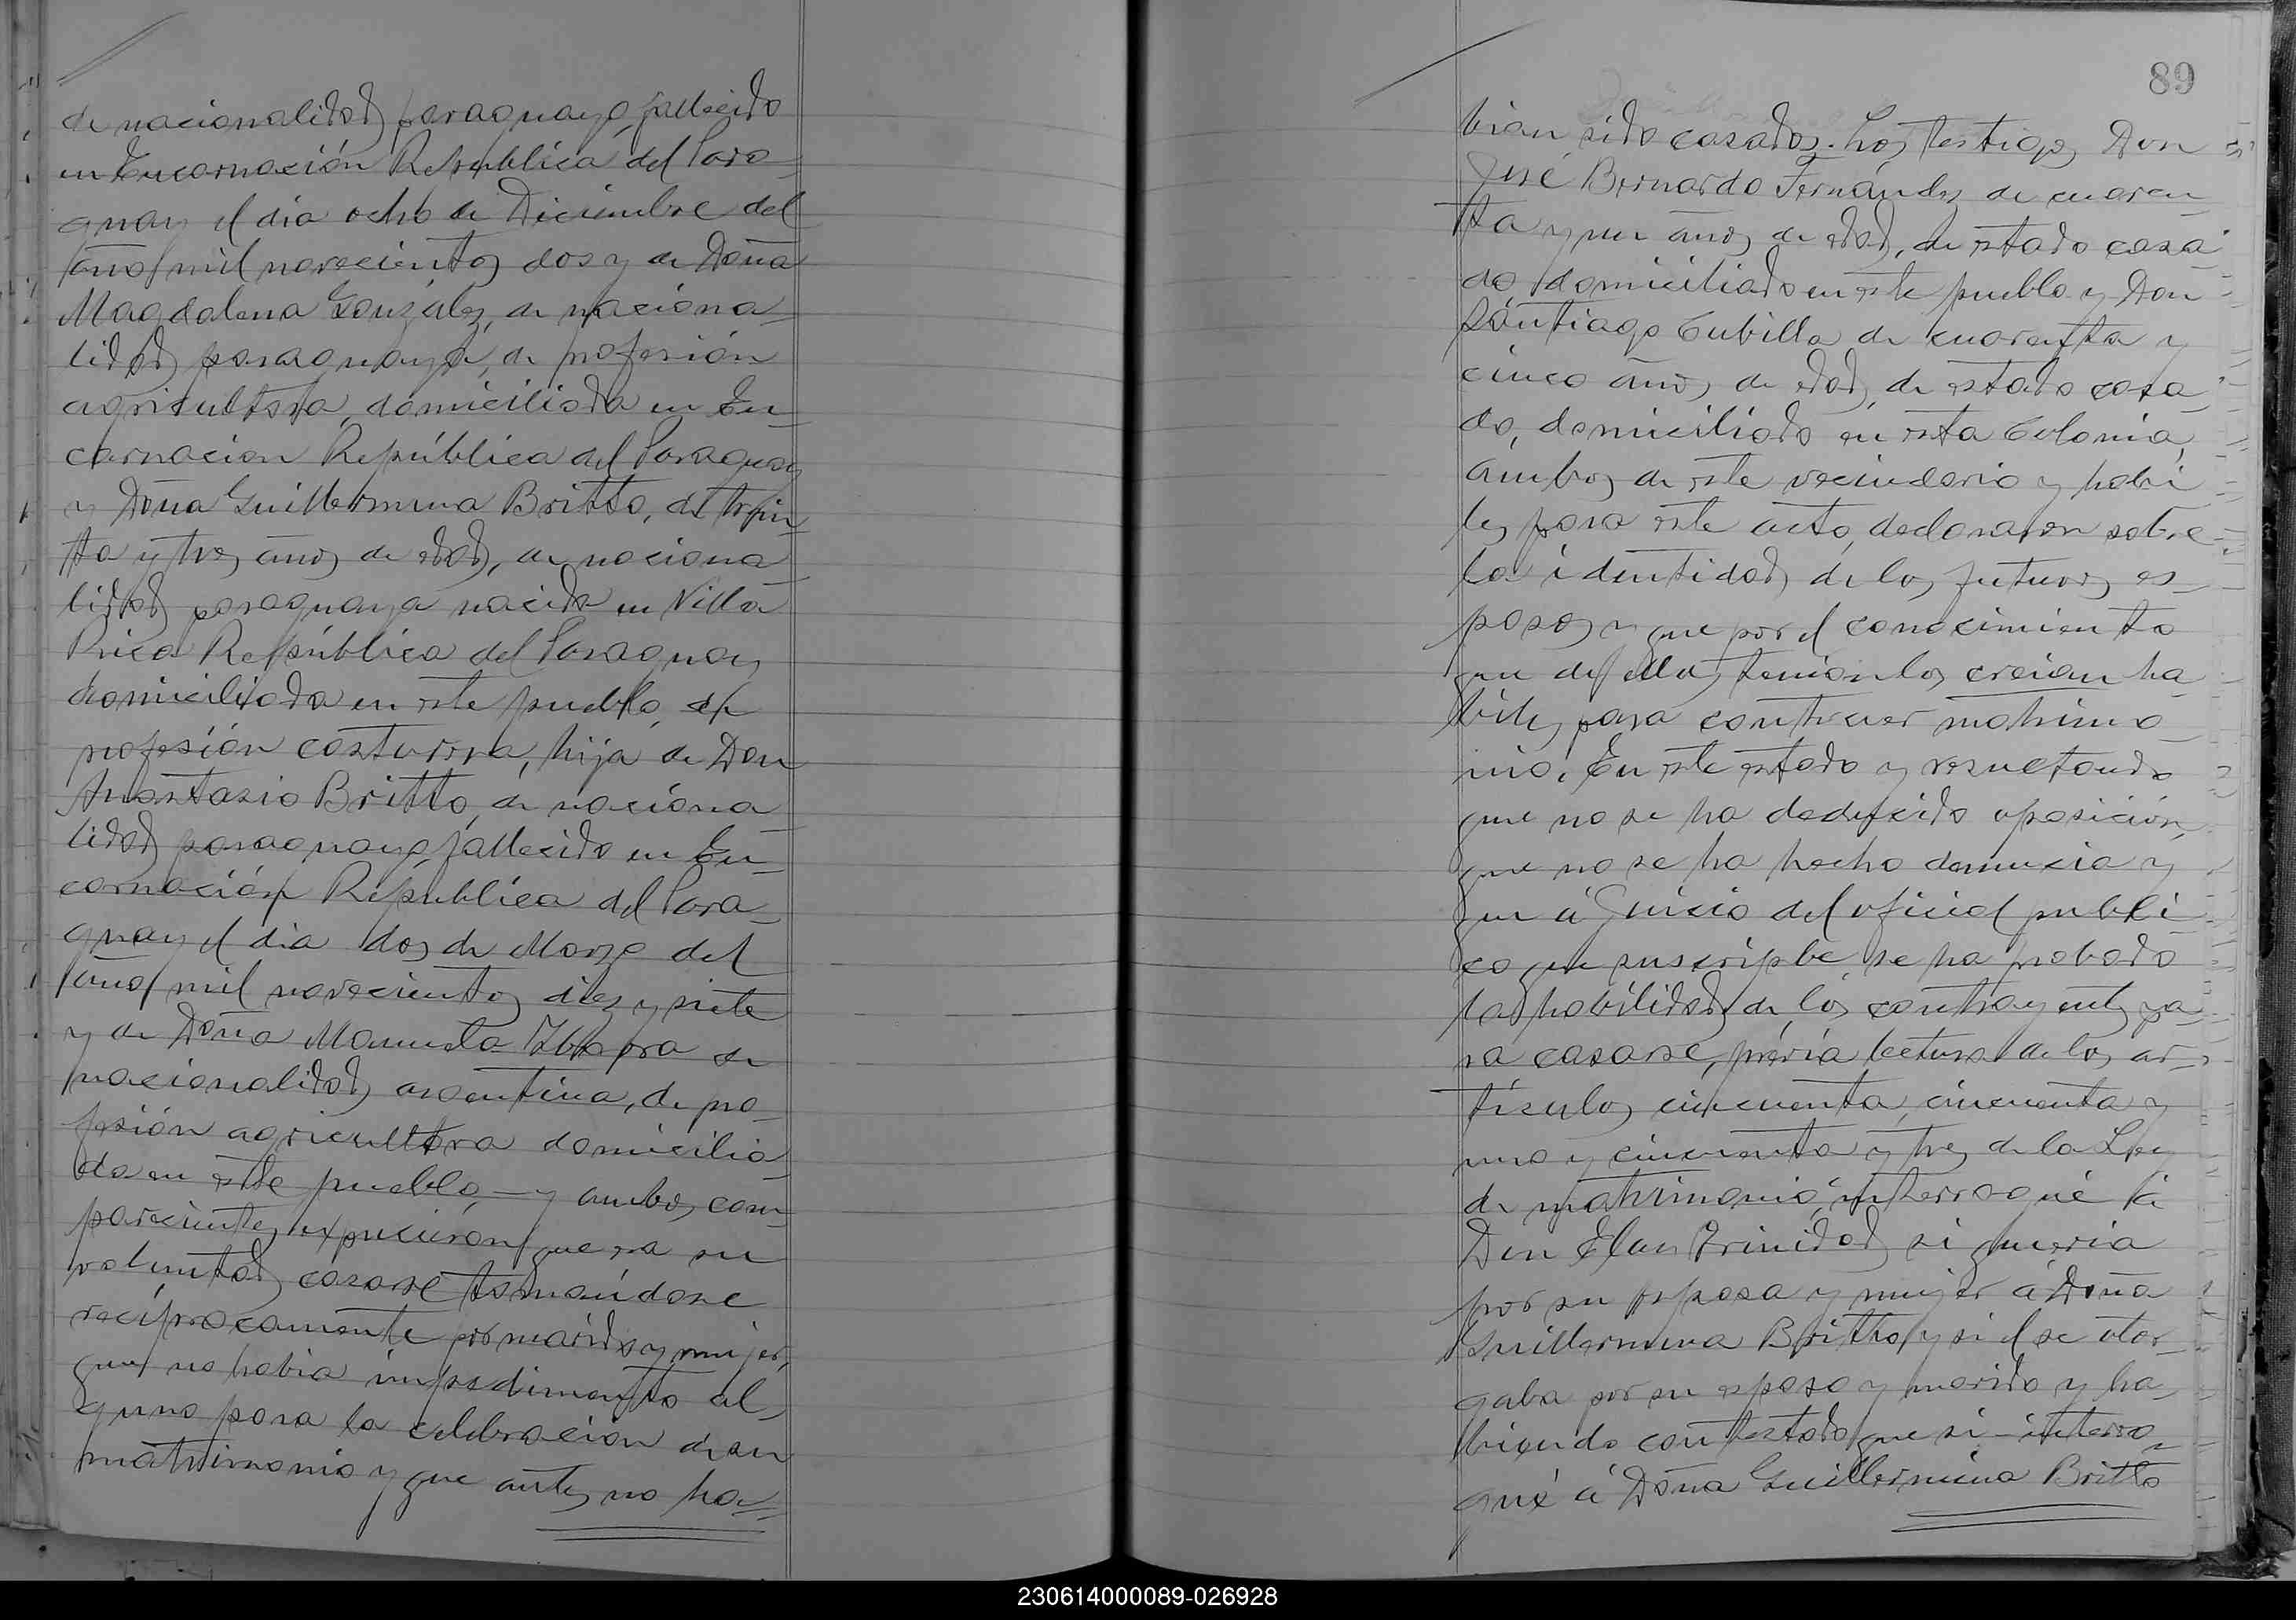 de nacionalidad paraguayo, fallecido
en Encarnación República del Para-
guay el día ocho de Diciembre del
año mil novecientos dos y de Doña
Magdalena González, de naciona-
lidad paraguaya, de profesión
agricultora, domiciliada en En-
carnacion República del Paraguay
y Doña Guillermina Britto, de trein-
ta y tres años de edad, de naciona-
lidad paraguaya nacida en Villa
Rica República del Paraguay
domiciliada en este pueblo, de
profesión costurera, hija de Don
Anastasio Britto, de naciona-
lidad paraguayo, fallecido en En-
carnación República del Para-
guay el dia dos de Marzo del
año mil novecientos diez y siete
y de Doña Manuela de
nacionalidad argentina, de pro-
fesión agricultora domicilia-
da en este pueblo, - y ambos com-
parecientes expucieron que era su
voluntad casarse tomándose
recíprocamente por marido y mujer,
que no habia impedimento al-
guno para la celebracion de su
matrimonio y que antes no ha-
89
bian sido casados. Los testigos Don
José Bernardo Fernández de cuaren-
ta y un años de edad, de estado casa-
do, domiciliado en este pueblo y Don
Santiago Cubilla de cuarenta y
cinco años de edad, de estado casa-
do, domiciliado en esta Colonia,
ambos de este vecindario y habi-
les para este acto, declararon sobre
la identidad de los futuros es-
posos y que por el conocimiento
que de ellos tenian los creian ha-
biles para contraer matrimo-
nio. En este estado y resultando
que no se ha deducido oposición,
que no se ha hecho denuncia y
que á Juicio del oficial publi-
co que suscribe, se ha probado
la habilidad de los contrayentes pa-
ra casarse, prévia lectura de los ar-
tículos cincuenta, cincuenta y
uno y cincuenta y tres de la Ley
de matrimonio, interrogué á
Don Elau Trinidad si queria
por su esposa y mujer á Doña
Guillermina Britto, y si él se otor-
gaba por su esposo y marido y ha-
biendo contestado que si - interro-
gué á Doña Guillermina Britto
230614000089-026928